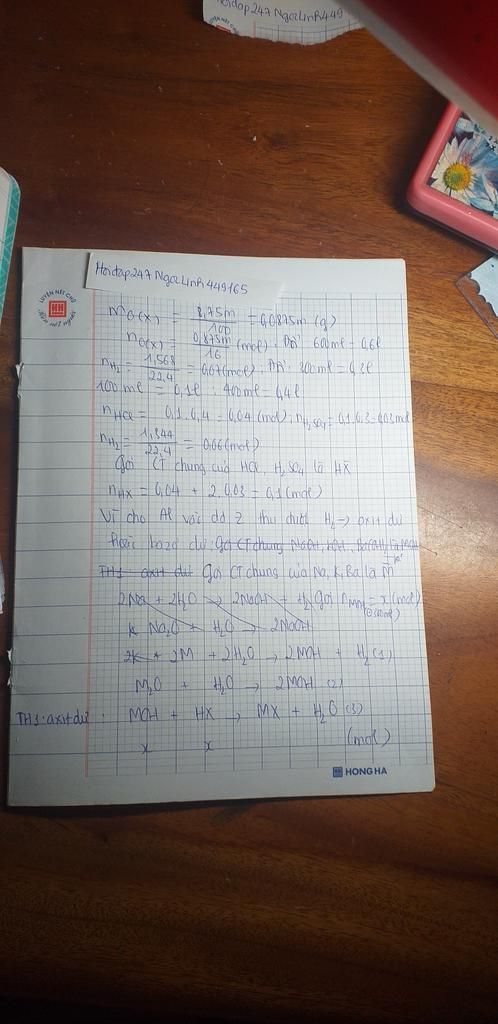 Hoidap247 NgocLinh449
Hoidap247 NgocLinh449165
LUYỆN NÉT CHỮ
mO(X) = 8,75m/100 = 0,0875m (g)
nO(X) = 0,875m/16 (mol) ; Đổi 600ml = 0,6l
nH2 = 1,568/22,4 = 0,07(mol) ; Đổi 300ml = 0,3l
100ml = 0,1l ; 400ml = 0,4l
nHCl = 0,1.0,4 = 0,04 (mol) ; nH2SO4 = 0,1.0,3 = 0,03 mol
nH2 = 1,344/22,4 = 0,06(mol)
Gọi CT chung của HCl, H2SO4 là HX
nHX = 0,04 + 2.0,03 = 0,1(mol)
Vì cho Al vào dd Z thu được H2 → axit dư
hoặc bazơ dư. Gọi CT chung NaOH, KOH, Ba(OH)2 là MOH
TH1 axit dư Gọi CT chung của Na, K, Ba là M
2Na + 2H2O → 2NaOH + H2 Gọi nMOH = x (mol)
Na2O + H2O → 2NaOH
2K + 2M + 2H2O → 2MOH + H2 (1)
M2O + H2O → 2MOH (2)
TH1: axit dư : MOH + HX → MX + H2O (3)
x x (mol)
HONG HA